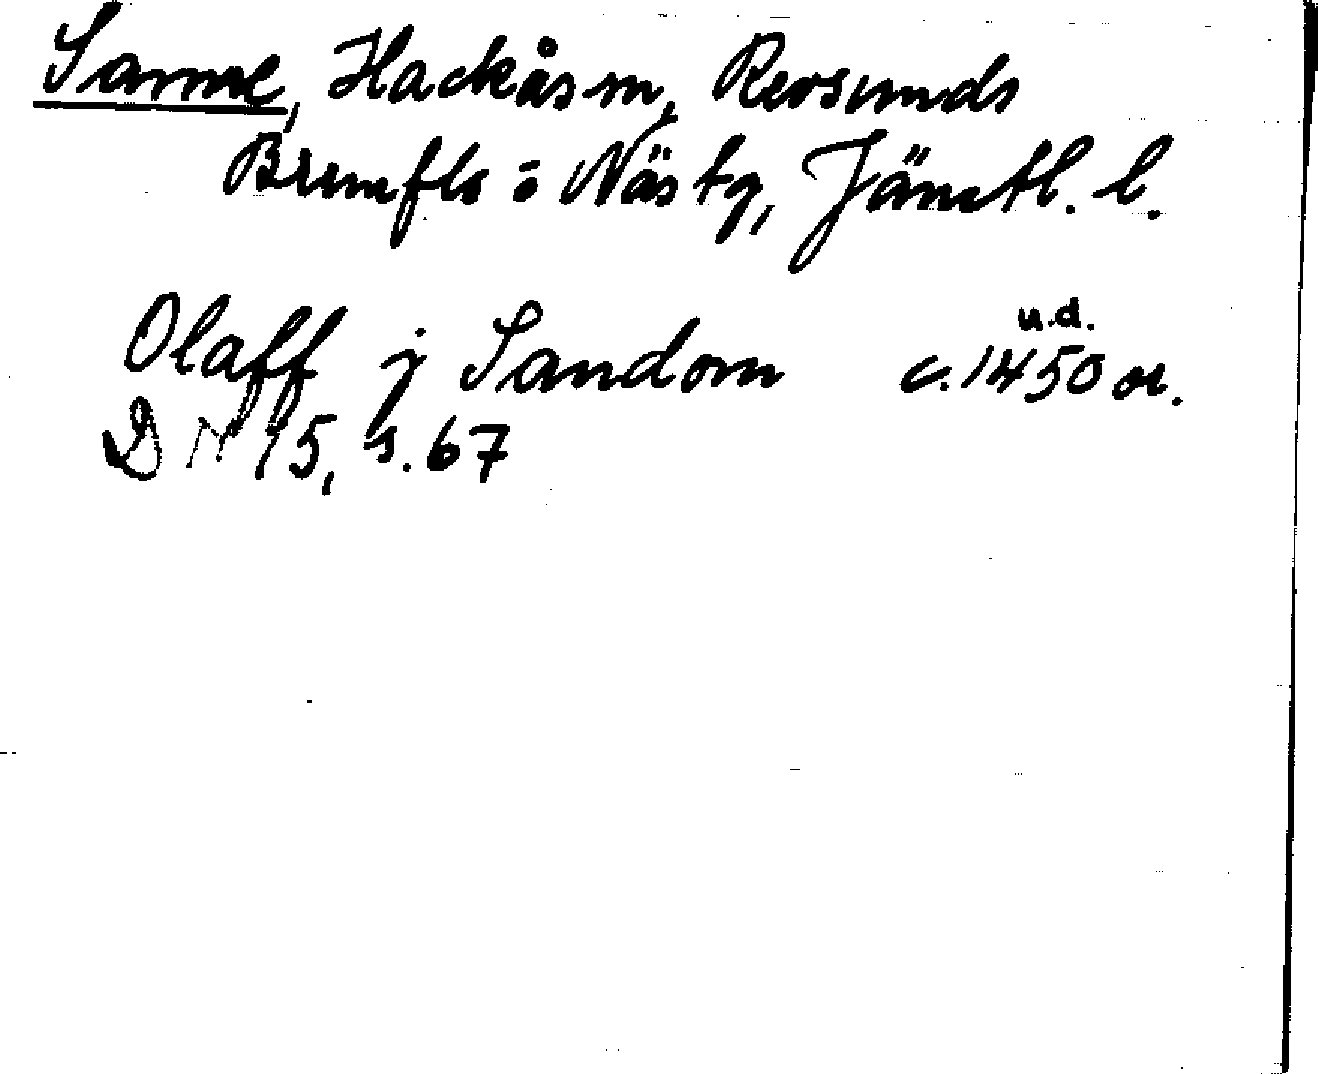 Sanne, Hackås sn, Revsunds
Brunflo o Näs tg, Jämtl. l.
u.d.
Olaff j Sandom c. 1450 or.
DN 15, s. 67